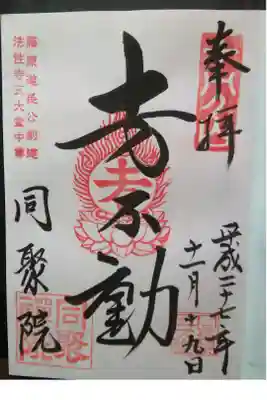 奉拝
平成二十七年
十一月十九日
𡈽不動
藤原忠民公創建
法性寺五大堂中尊
同聚院
同聚院